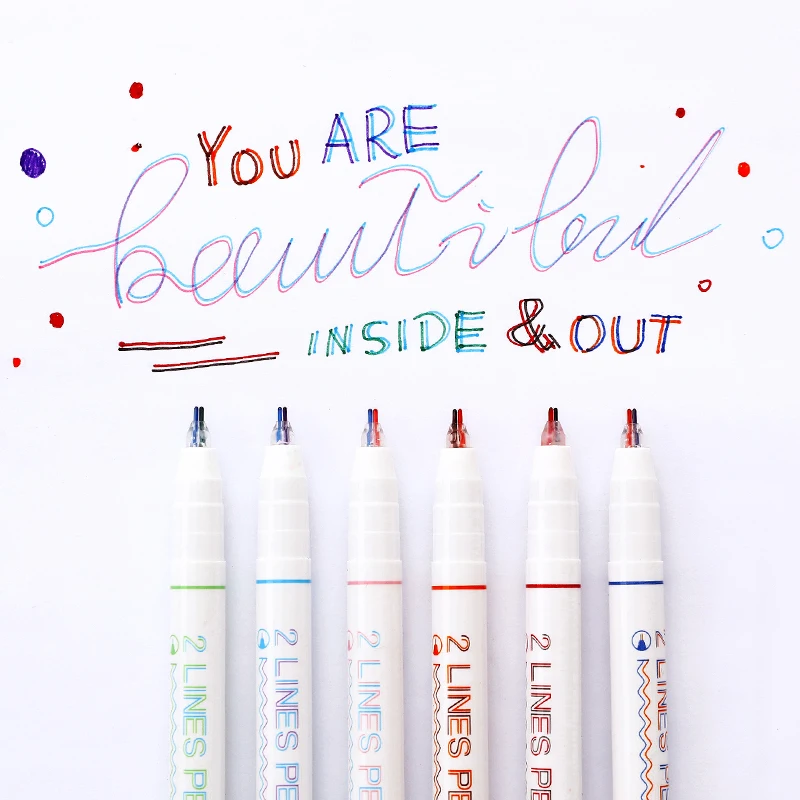 YOU ARE
beautiful
INSIDE & OUT
2 LINES PE
2 LINES PE
2 LINES PE
2 LINES PE
2 LINES PE
2 LINES PE